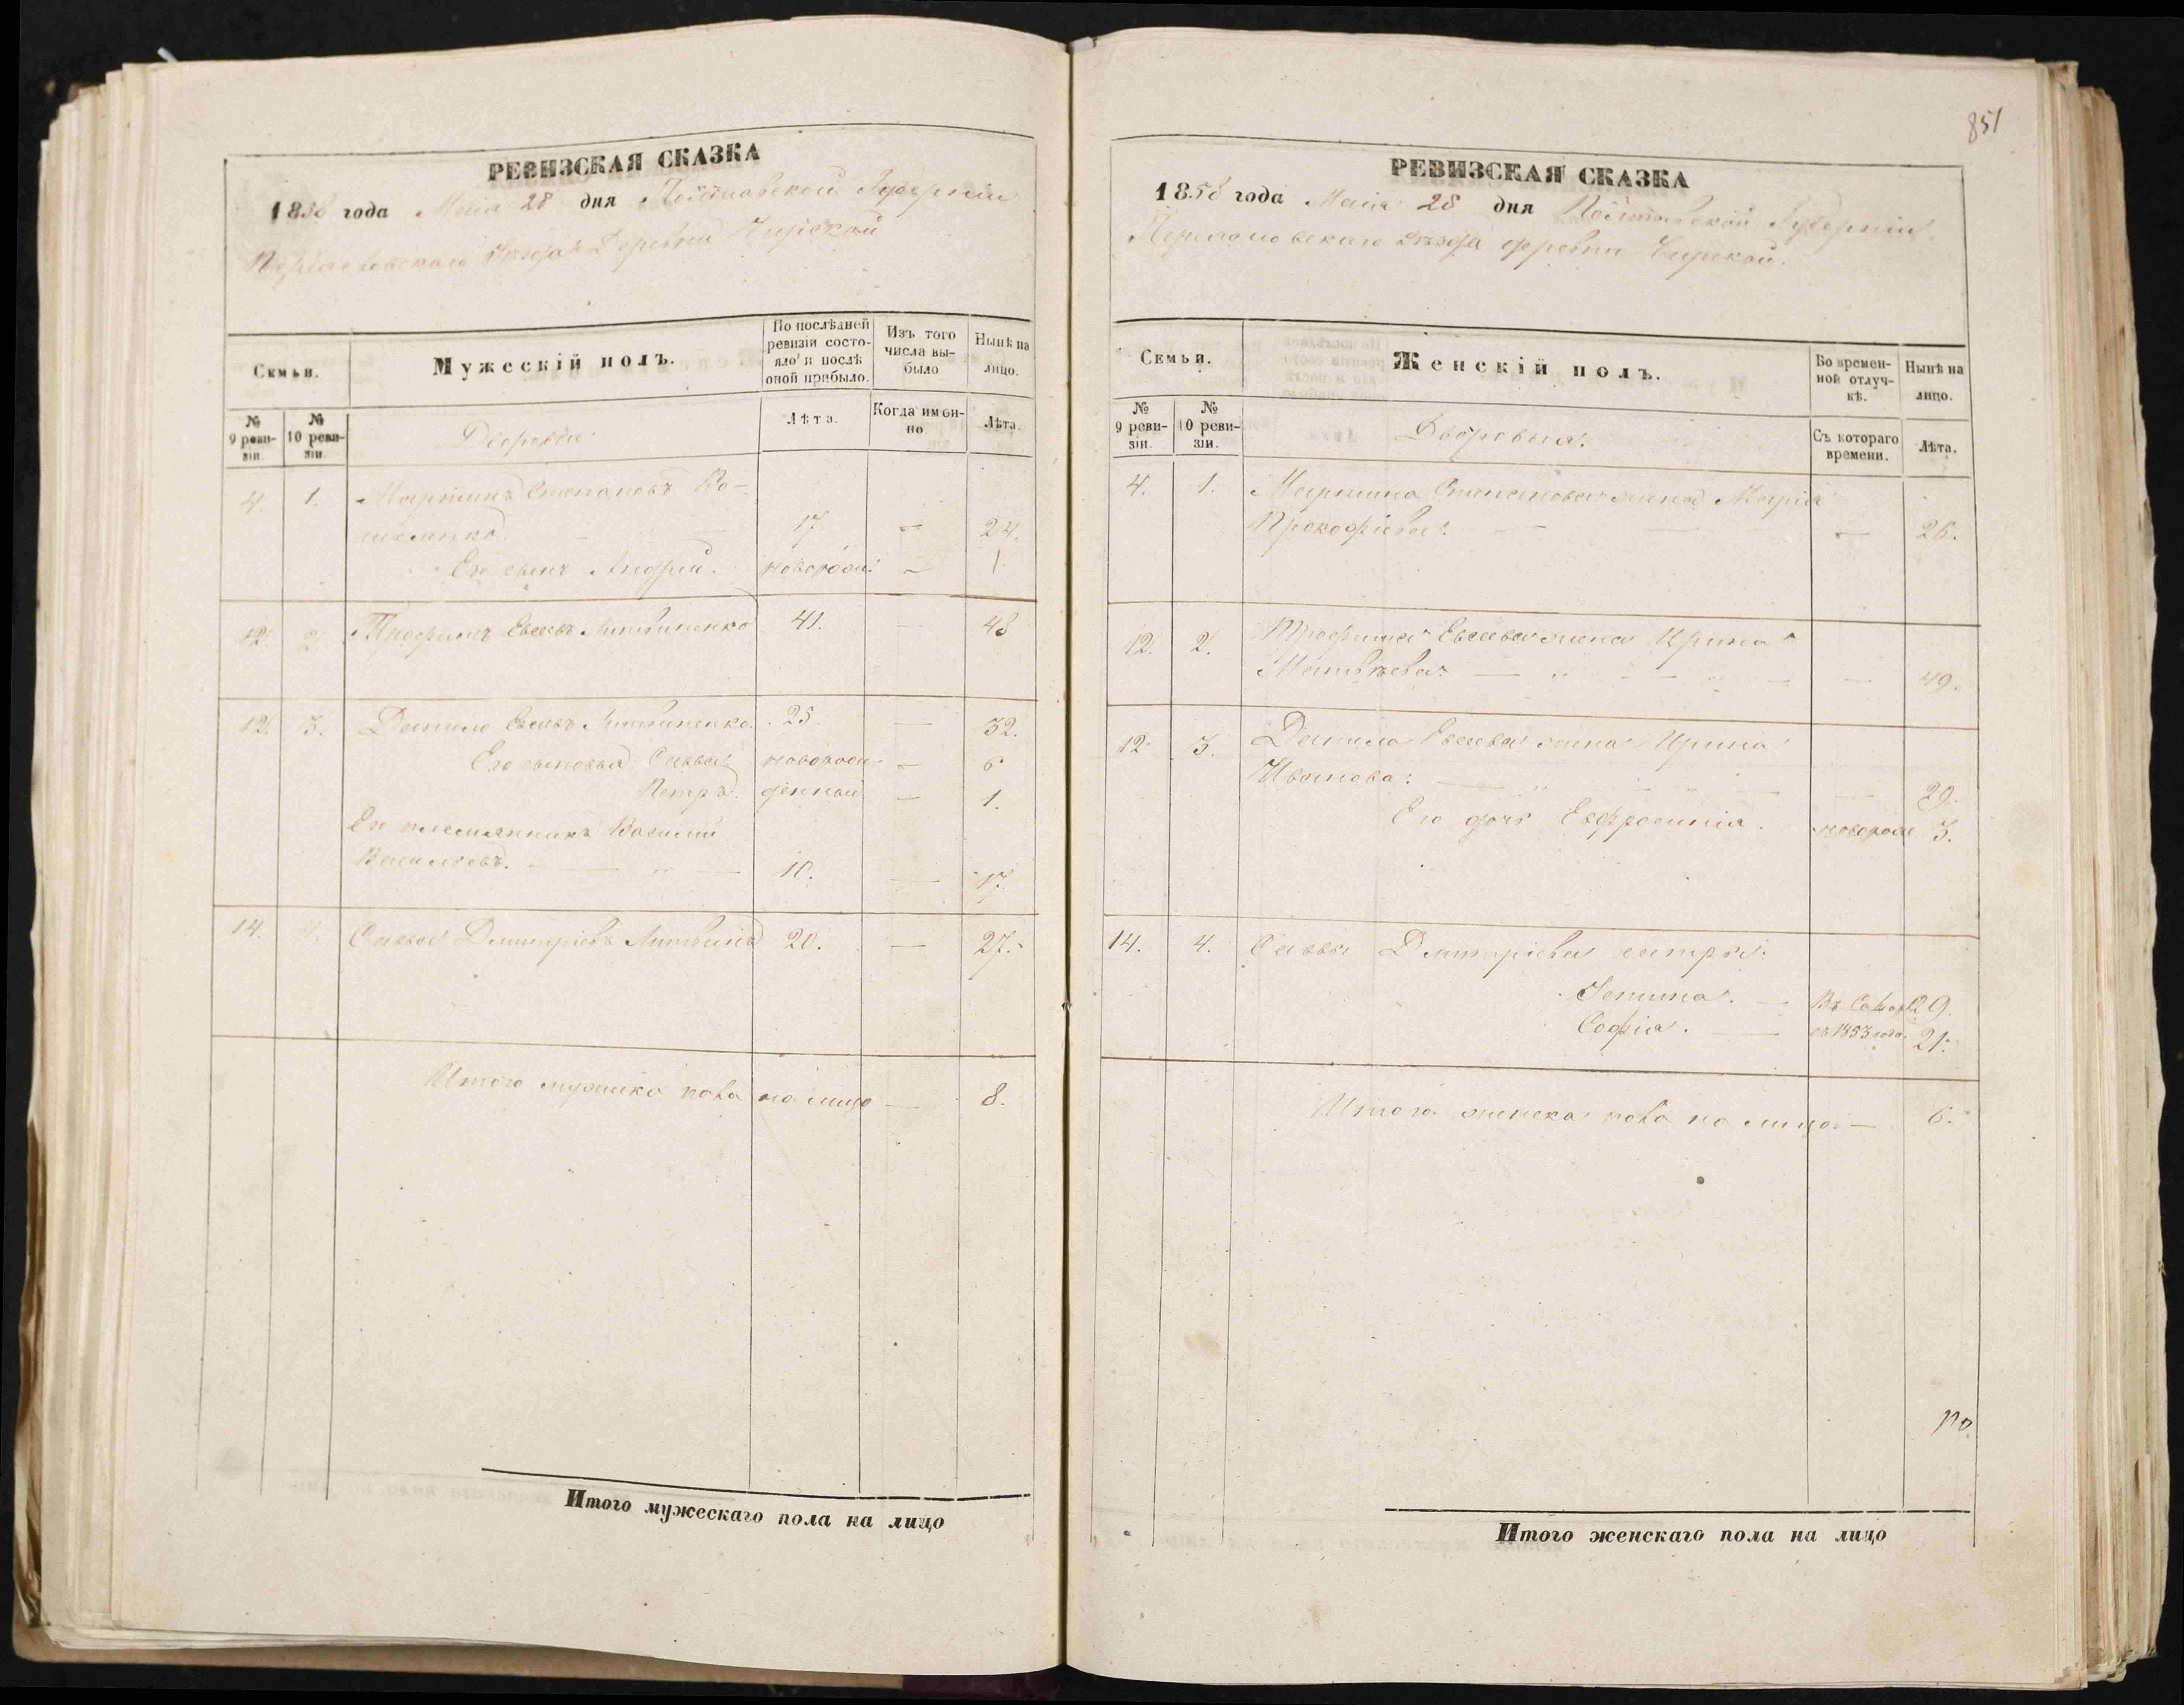 РЕВИЗСКАЯ СКАЗКА
1858 года Маiя 28 дня Полтавской Губернiи
Переяславскаго Уѣзда Деревни Чирской
Семьи.
Мужескiй полъ.
По послѣдней ревизiи состояло и послѣ оной прибыло.
Изъ того числа выбыло
Нынѣ на лицо.
№ 9 ревизiи.
№ 10 ревизiи.
Дворовыя
Лѣта.
Когда именно.
Лѣта.
4. 1. Мартинъ Степановъ Ко-
шеленко. 17. — 24.
Его сынъ Андрей. новорожд. — 1.
12. 2. Трофимъ Евсеевъ Литвиненко 41. — 48
12. 3. Данило Евсеевъ Литвиненко. 25. — 32.
Его сыновья Савва новорож — 6
Петръ. денной — 1.
Его племянникъ Василий
Васильевъ. — „ — 10. — 17.
14. 4. Савва Дмитрiевъ Литвинъ 20. — 27.
Итого мужеска пола на лицо — 8.
Итого мужескаго пола на лицо
851
РЕВИЗСКАЯ СКАЗКА
1858 года Маiя 28 дня Полтавской Губернiи
Переяславскаго Уѣзда деревни Чирской.
Семьи.
Женскiй полъ.
Во временной отлучкѣ.
Нынѣ на лицо.
№ 9 ревизiи.
№ 10 ревизiи.
Дворовыя.
Съ котораго времени.
Лѣта.
4. 1. Мартина Степанова жена Марiя
Прокофiева. — — — 26.
12. 2. Трофима Евсеева жена Ирина
Матвѣева. — „ — — „ — — 49.
12. 3. Данила Евсеева жена Ирина
Иванова. — „ — „ — — 29.
Его дочь Евфросинiя. новорож 3.
14. 4. Саввы Дмитрiева сестры:
— Въ 29.
Софiя. — съ 1853 года. 21.
Итого женска пола на лицо — 6.
Итого женскаго пола на лицо